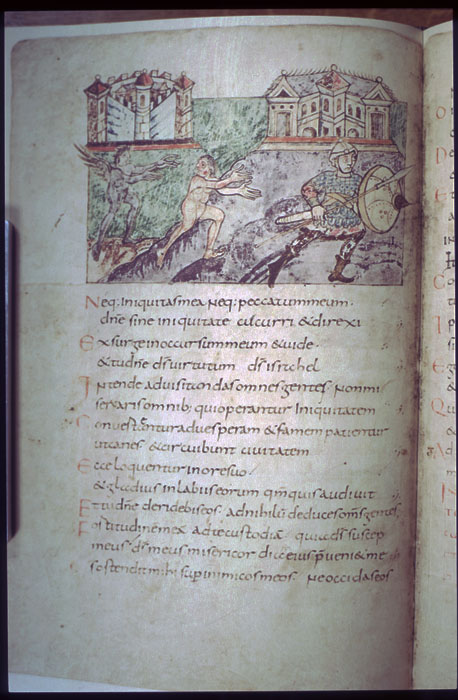 Neq; iniquitas mea neq; peccatum meum·
dne sine iniquitate cucurri & direxi
Exsurge in occursum meum & uide·
& tu dne ds uirtutum ds isrl
Intende ad uisitandas omnes gentes non mi
serearis omnib; qui operantur iniquitatem
Conuertentur ad uesperam & famem patientur
ut canes & circuibunt ciuitatem
Ecce loquentur in ore suo
& gladius in labiis eorum qm quis audiuit
Et tu dne deridebis eos ad nihilu deduces oms gentes
Fortitudinem meã ad te custodiã quia ds suscep
meus ds meus misericordia eius pueni& me
ostendit mihi sup inimicos meos ne occidas eos